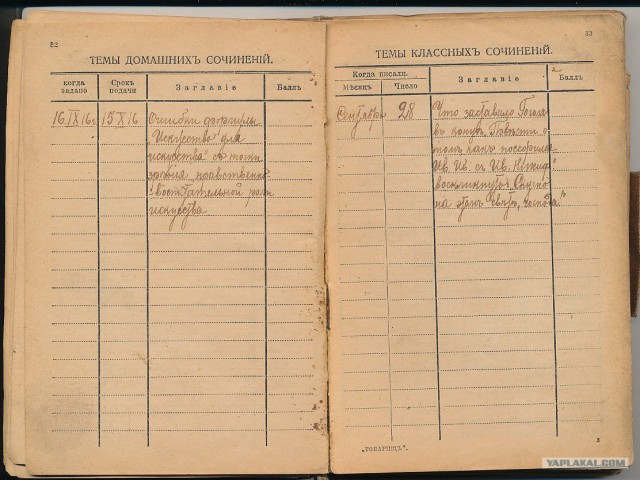 32
ТЕМЫ ДОМАШНИХЪ СОЧИНЕНІЙ.
когда задано
Срокъ подачи
Заглавіе
Баллъ
16 IX 16г.
15 X 16
Ошибки формулы
„Искусство для
искусства" съ точки
зрѣнія нравственно-
воспитательной роли
искусства
33
ТЕМЫ КЛАССНЫХЪ СОЧИНЕНІЙ.
Когда писали.
Мѣсяцъ
Число
Заглавіе
Баллъ
Сентябрь
28
Что заставило Гоголя
въ концѣ „Повѣсти о
томъ какъ поссорились
Ив. Ив. съ Ив. Никиф."
воскликнуть „Скучно
на этомъ свѣтѣ, господа."
„ТОВАРИЩЪ".
3
YAPLAKAL.COM